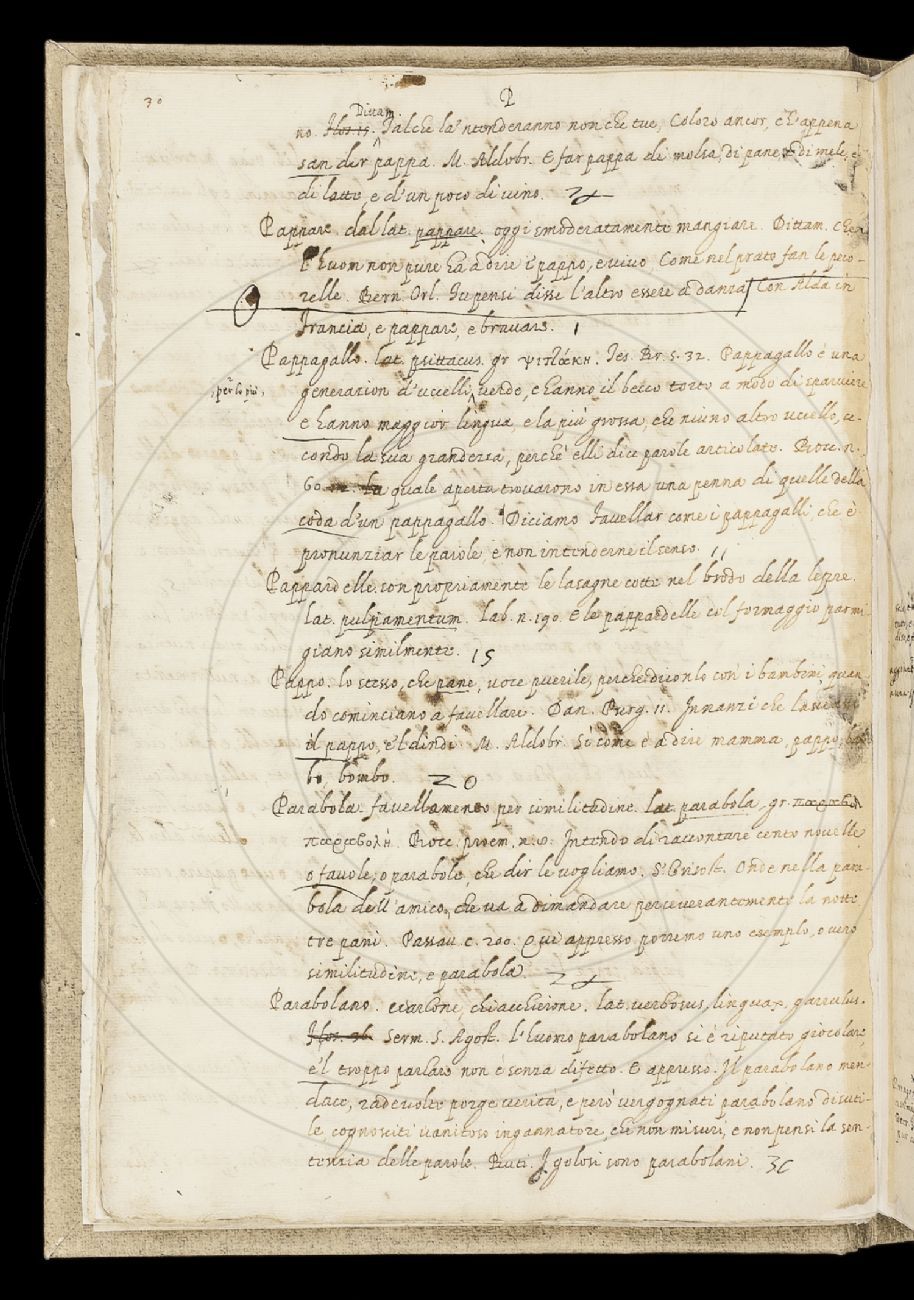 30
P
Dittam.
no. Talche la'ntonderanno non che tue, Coloro ancor, ch'appena
san dir pappa. M. Aldobr. E far pappa di molsa, di pane, di mele, e
di latte, e d'un poco di vino.
Pappare. dal lat. pappare. oggi smoderatamente mangiare. Dittam. Che
l'huom non pure ha a dire i pappo, e vivo Come nel prato fan le peco-
relle. Bern. Orl. Tu pensi disse l'altro essere a danza Con Alda in
Francia, e pappare, e bravare. 1
Pappagallo. lat. psittacus. gr. ψιττάκη. Tes. Br. 5. 32. Pappagallo è una
, per lo più,
generazion d'uccelli verde, e hanno il becco torto a modo di sparviere
e hanno maggior lingua, e la più grossa, che niuno altro uccello, se-
condo la sua grandezza, perchè elli dice parole articolate. Bocc. n.
60. la quale aperta trovarono in essa una penna di quelle della
coda d'un pappagallo. Diciamo Favellar come i pappagalli, che è
pronunziar le parole, e non intenderne il senso. 11
Pappardelle. son propriamente le lasagne cotte nel brodo della lepre.
lat. pulpamentum. Lab. n. 190. E le pappardelle col formaggio parmi
giano similmente. 15
Pappo. lo stesso, che pane, voce puerile, perche dicenlo così i bambini quan
do cominciano a favellare. Dan. Purg. 11. Innanzi che lasciassi
il pappo, e'l dindi. M. Aldobr. Sì come è a dire mamma, pappo, bab
bo, bombo. 20
Parabola. favellamento per similitudine. lat. parabola, gr. παραβολ
παραβολή. Bocc. proem. n. 8. Intendo di raccontare cento novelle,
o favole, o parabole, che dir le vogliamo. S. Grisost. Onde nella para-
bola dell'amico, che va a dimandare perseverantemente la notte
tre pani. Passav. c. 200. Qui appresso porremo uno esemplo, o vero
similitudine, e parabola.
Parabolano. ciarlone, chiacchierone. lat. verbosus, linguax, garrulus.
Serm. S. Agost. L'huomo parabolano si è riputato giocolare
e'l troppo parlare non è senza difetto. E appresso. Il parabolano men-
dace, rade volte porge verità, e però vergognati parabolano disuti-
le, cognosciti vanitoso ingannatore, che non misuri, e non pensi la sen-
tenzia delle parole. Buti. I golosi sono parabolani. 30